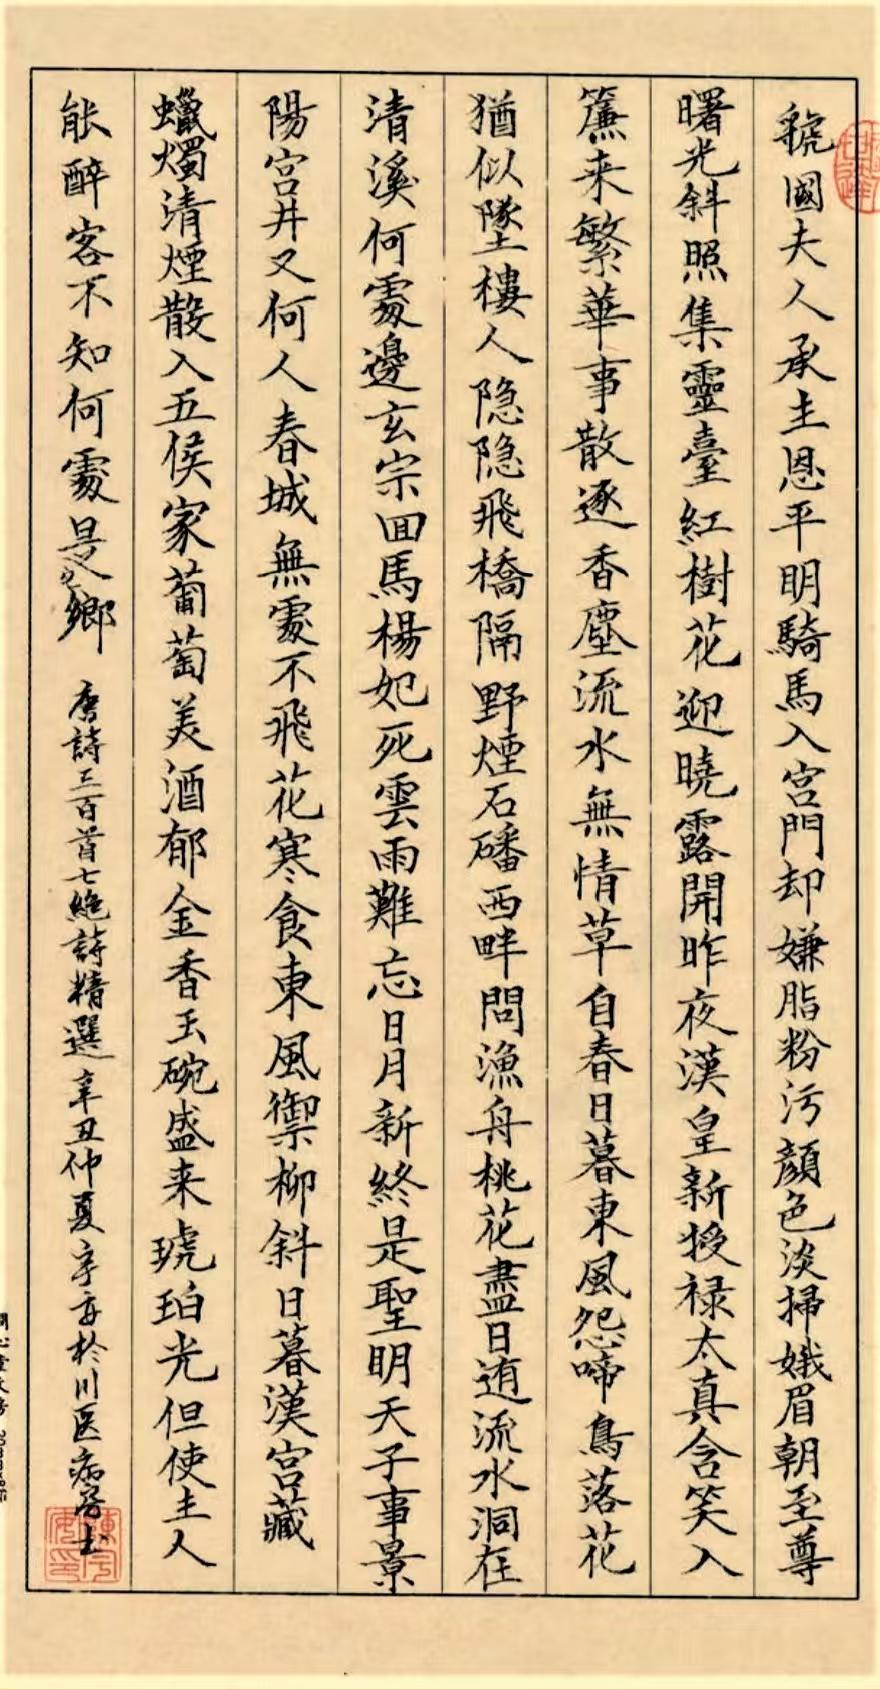 虢國夫人承主恩平明騎馬入宮門却嫌脂粉污顏色淡掃娥眉朝至尊
曙光斜照集靈臺紅樹花迎曉露開昨夜漢皇新授禄太真含笑入
簾来繁華事散逐香塵流水無情草自春日暮東風怨啼鳥落花
猶似墜樓人隐隐飛橋隔野煙石磻西畔問漁舟桃花盡日逥流水洞在
清溪何處邊玄宗囬馬楊妃死雲雨難忘日月新終是聖明天子事景
陽宮井又何人春城無處不飛花寒食東風禦柳斜日暮漢宮藏
蠟燭清煙散入五侯家葡萄美酒郁金香玉碗盛来琥珀光但使主人
能醉客不知何處是他鄉
唐詩三百首七絶詩精選 辛丑仲夏 於川医病房